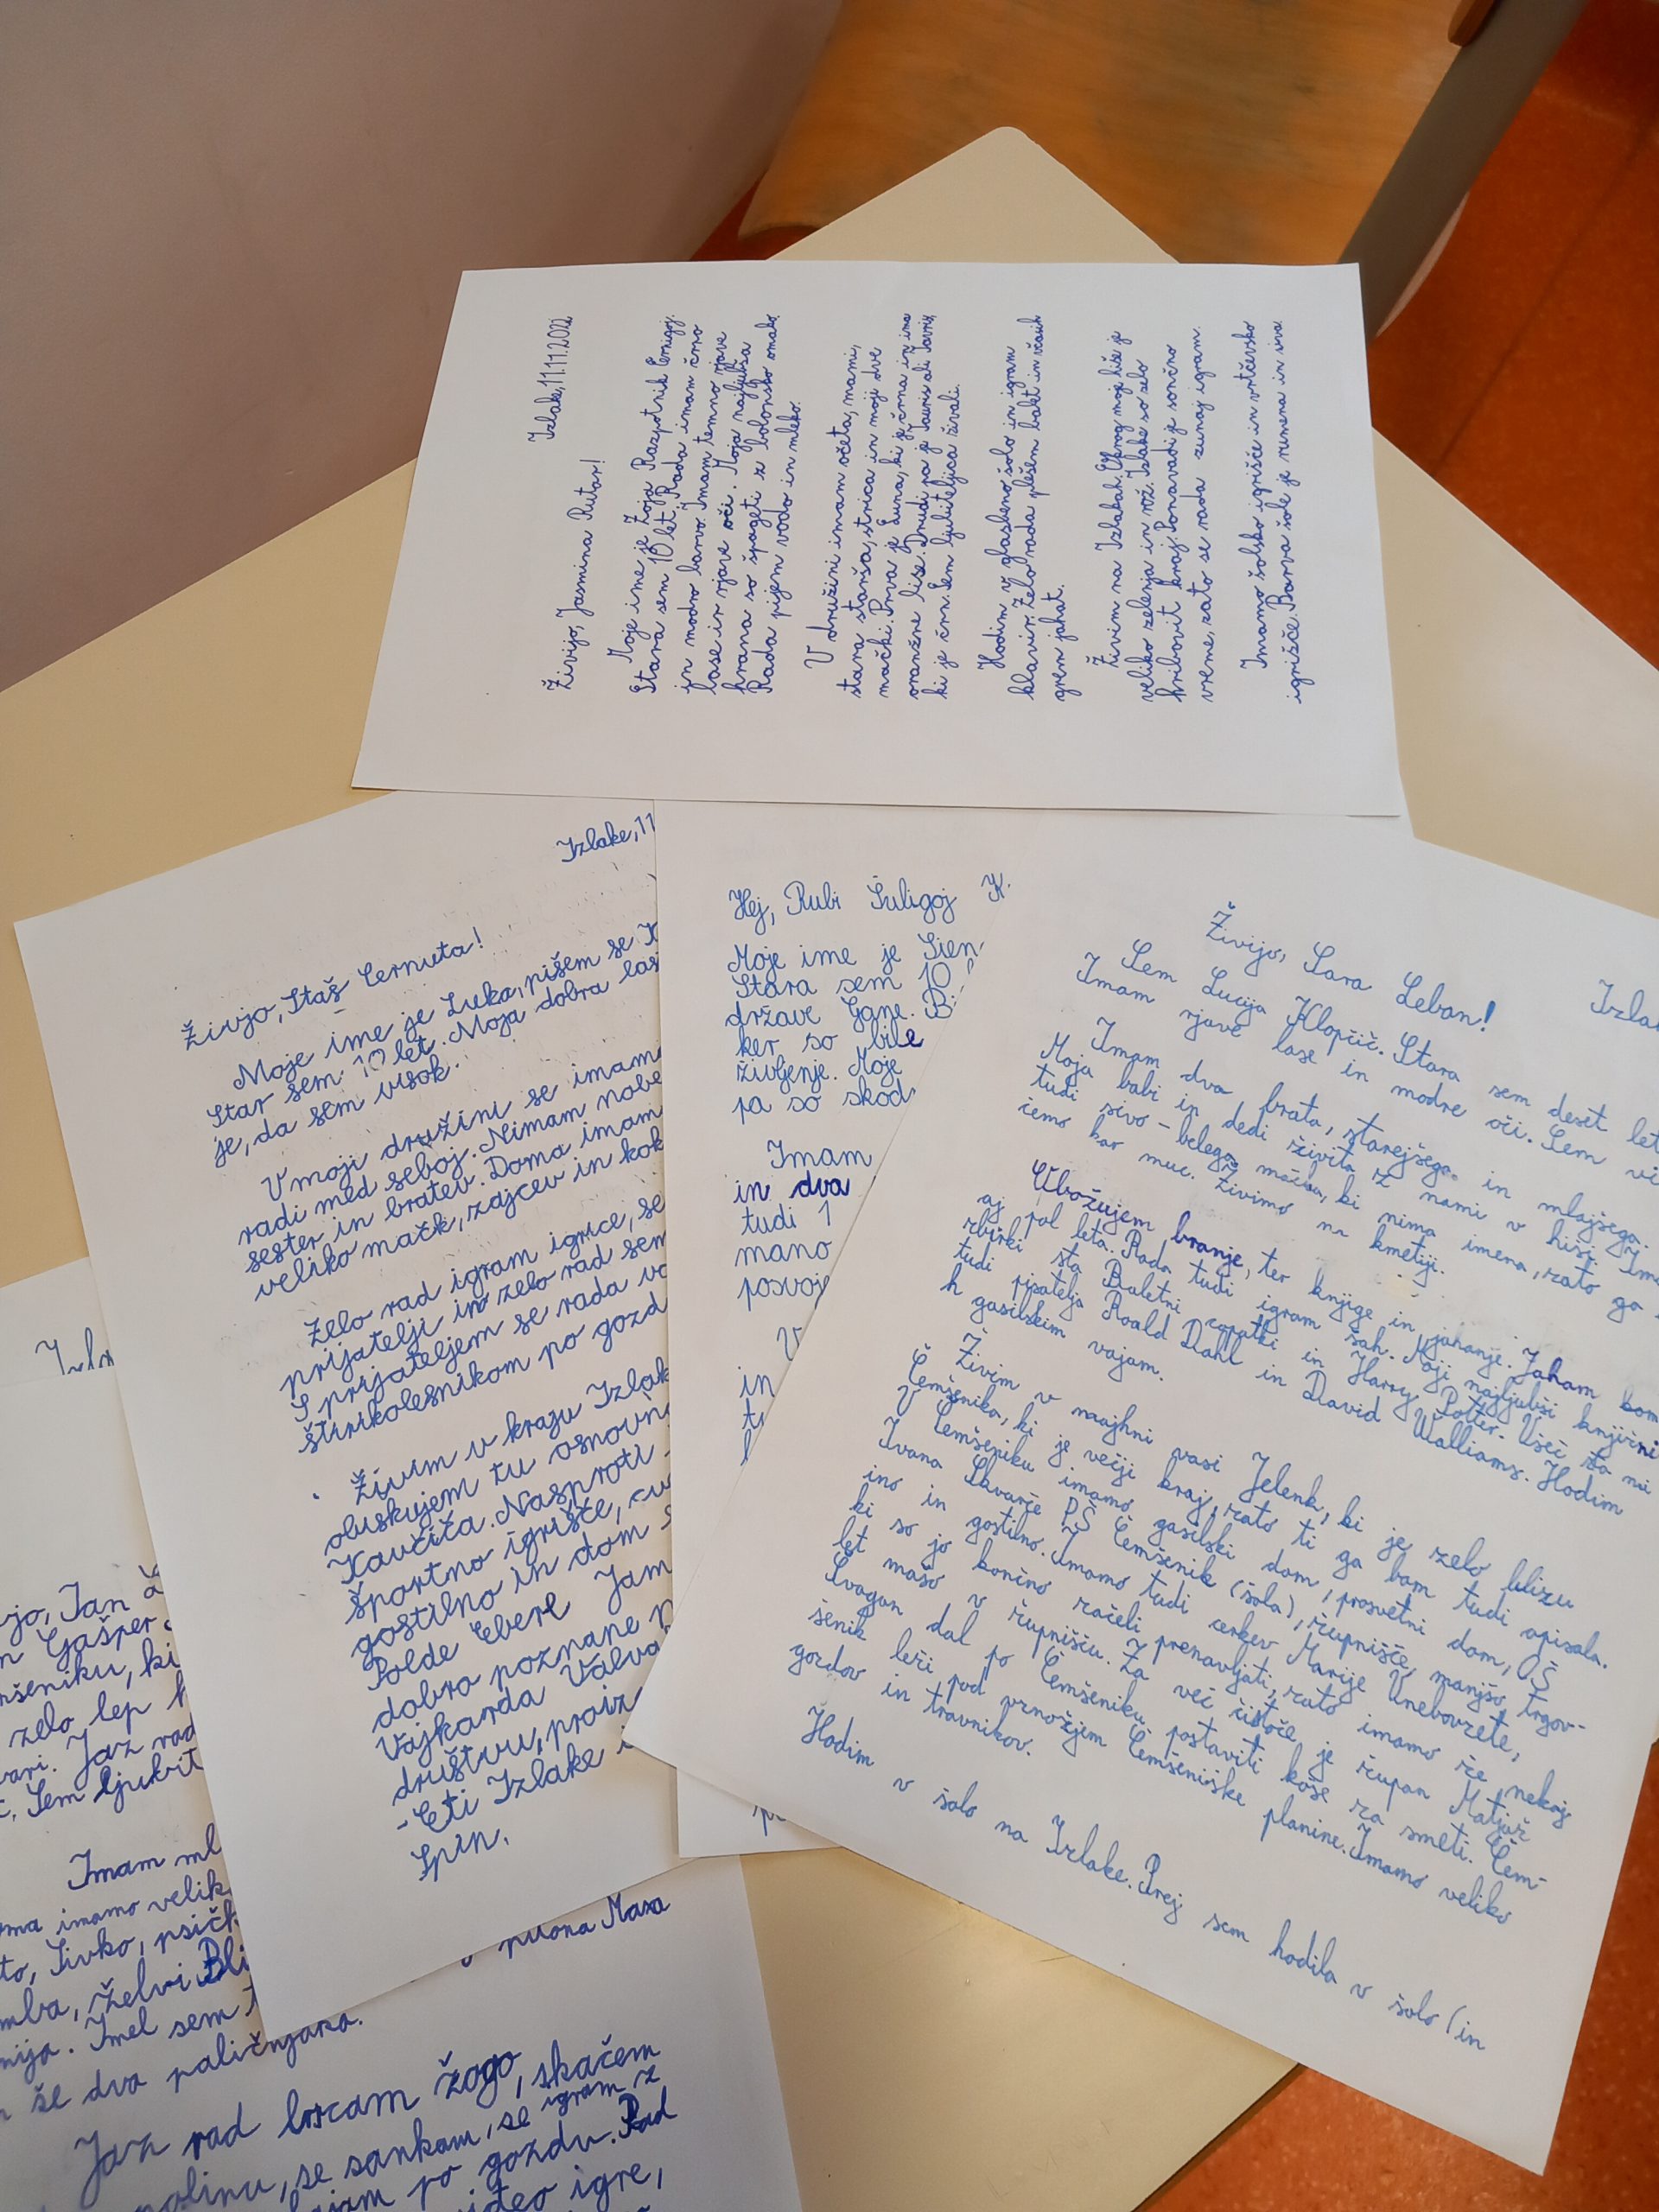 Izlake, 11.11.2022
Živijo, Jasmina Rutar!
Moje ime je Zoja Razpotnik Črnigoj.
Stara sem 10 let. Rada imam črno
in modro barvo. Imam temno rjave
lase in rjave oči. Moja najljubša
hrana so špageti z bolonsko omako.
Rada pijem vodo in mleko.
V družini imam očeta, mami,
stara starša, strica in moji dve
mački. Prva je Luna, ki je črna in ima
oranžne lise. Drudi pa je
ki je črn. Sem ljubiteljica živali.
Hodim v glasbeno šolo in igram
klavir. Zelo rada plešem balet in včasih
grem jahat.
Živim na Izlakah. Okrog moje hiše je
veliko zelenja in rož. Izlake so zelo
hribovit kraj. Ponavadi je sončno
vreme, zato se rada zunaj igram.
Imamo šolsko igrišče in vrtčevsko
igrišče. Barva šole je rumena in siva.
Izlake, 11
Živjo, Staš Černuta!
Moje ime je Luka, pišem se K
Star sem 10 let. Moja dobra las
je, da sem visok.
V moji družini se imamo
radi med seboj. Nimam nobe
sester in bratev. Doma imam
veliko mačk, zajcev in kok
Zelo rad igram igrice, se
prijatelji in zelo rad sem
S prijateljem se rada vo
štirikolesnikom po gozd
Živim v kraju Izlak
obiskujem tu osnovno
Kavčiča. Nasproti
športno igrišče,
gostilno in dom s
Polde Eberl Jam
dobro poznane p
Vajkarda Valva
društvu, proiz
-Eti Izlake i
Spin.
Hej, Rubi Šuligoj K.
Moje ime je Sien
Stara sem 10 l
države Gane. B
ker so bile
življenje. Moje
pa so skod
Imam
in dva
tudi 1
mano
posvoje
V
in
t
Izla
Živijo, Lara Leban!
Sem Lucija Klopčič. Stara sem deset let
Imam rjave lase in modre oči. Sem vi
Imam dva brata, starejšega in mlajšega.
Moja babi in dedi živita z nami v hiši. Ima
tudi sivo-belega mačka, ki nima imena, zato ga
čemo kar muc. Živimo na kmetiji.
Obožujem branje, ter knjige in jahanje. Jaham kom
aj pol leta. Rada tudi igram šah. Moji najljubši knjižni
zbirki sta Baletni copatki in Harry Potter. Všeč sta mi
tudi pisatelja Roald Dahl in David Walliams. Hodim
k gasilskim vajam.
Živim v maajhni vasi Jelenk, ki je zelo blizu
Čemšenika, ki je večji kraj, zato ti ga bom tudi opisala.
V Čemšeniku imamo gasilski dom, prosvetni dom, OŠ
Ivana Skvarče PŠ Čemšenik (šola), župnišče, manjšo trgov-
ino in gostilno. Imamo tudi cerkev Marije Vnebovzete,
ki so jo končno začeli prenavljati, zato imamo že nekaj
let mašo v župnišču. Za več čistoče je župan Matjaž
Švagan dal po Čemšeniku postaviti koše za smeti. Čem-
šenik leži pod vznožjem Čemšeniške planine. Imamo veliko
gozdov in travnikov.
Hodim v šolo na Izlake. Prej sem hodila v šolo (in
Izla
jo, Jan
m Gašper
mšeniku, ki
zelo lep k
vari. Jaz rad
Sem ljubit
Imam ml
oma imamo velik
to, Sivko, psičk
mba, želvi Bli
nija. Imel sem t
še dva paličnjaka.
pitona Maxa
Jaz rad brcam žogo, skačem
polinu, se sankam, se igram z
po gozdu. Rad
video igre,